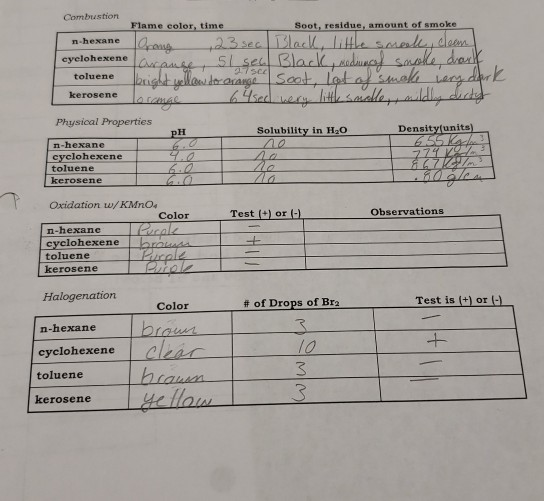 Combustion
Flame color, time Soot, residue, amount of smoke
n-hexane Orang , 23 sec Black, little smoke, clean
cyclohexene orange, 51 sec Black, medium of smoke, dark
toluene bright yellow to orange 27 sec Soot, lot of smoke very dark
kerosene orange 64 sec very little smoke, mildly
Physical Properties
pH Solubility in H₂O Density(units)
n-hexane 6.0 no 655 Kg/m³
cyclohexene 4.0 no 779 Kg/m³
toluene 6.0 no 867 Kg/m³
kerosene 6.0 no .80 g/cm
Oxidation w/KMnO₄
Color Test (+) or (-) Observations
n-hexane Purple −
cyclohexene brown +
toluene Purple −
kerosene Purple −
Halogenation
Color # of Drops of Br₂ Test is (+) or (-)
n-hexane brown 3 −
cyclohexene clear 10 +
toluene brown 3 −
kerosene yellow 3 −